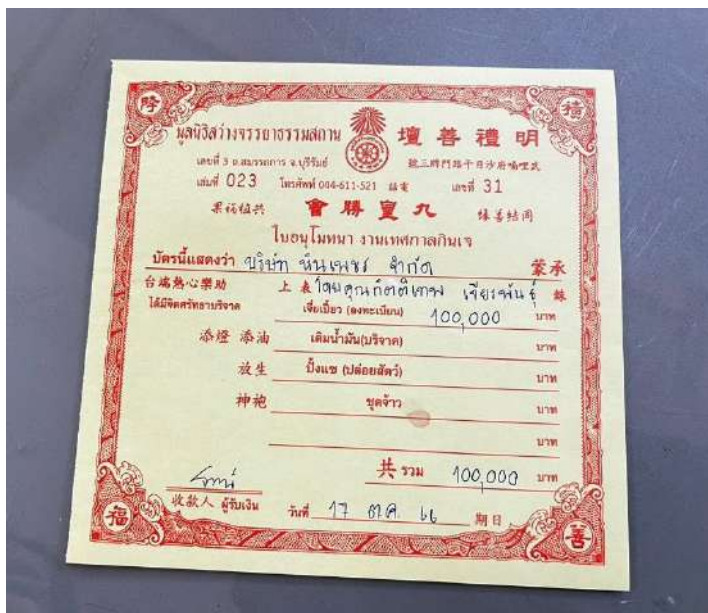 隆
禧
มูลนิธิสว่างจรรยาธรรมสถาน 壇善禮明
เลขที่ 3 ถ.สมรรถการ จ.บุรีรัมย์ 號三牌門路干月沙府喃哩武
เล่มที่ 023 โทรศัพท์ 044-611-521 話電 เลขที่ 31
果福植共 會勝皇九 緣善結同
ใบอนุโมทนา งานเทศกาลกินเจ
บัตรนี้แสดงว่า บริษัท หินเพชร จำกัด 蒙承
台端熱心樂助 上表 โดยคุณกิตติเทพ เจียรพันธุ์
ได้มีจิตศรัทธาบริจาค เจี่ยเปี้ยว (ลงทะเบียน) 100,000 บาท
添燈 添油 เติมน้ำมัน(บริจาค) บาท
放生 ปั้งแซ (ปล่อยสัตว์) บาท
神袍 ชุดจ้าว บาท
บาท
共 รวม 100,000 บาท
收款人 ผู้รับเงิน วันที่ 17 ต.ค. 66 期日
福
善